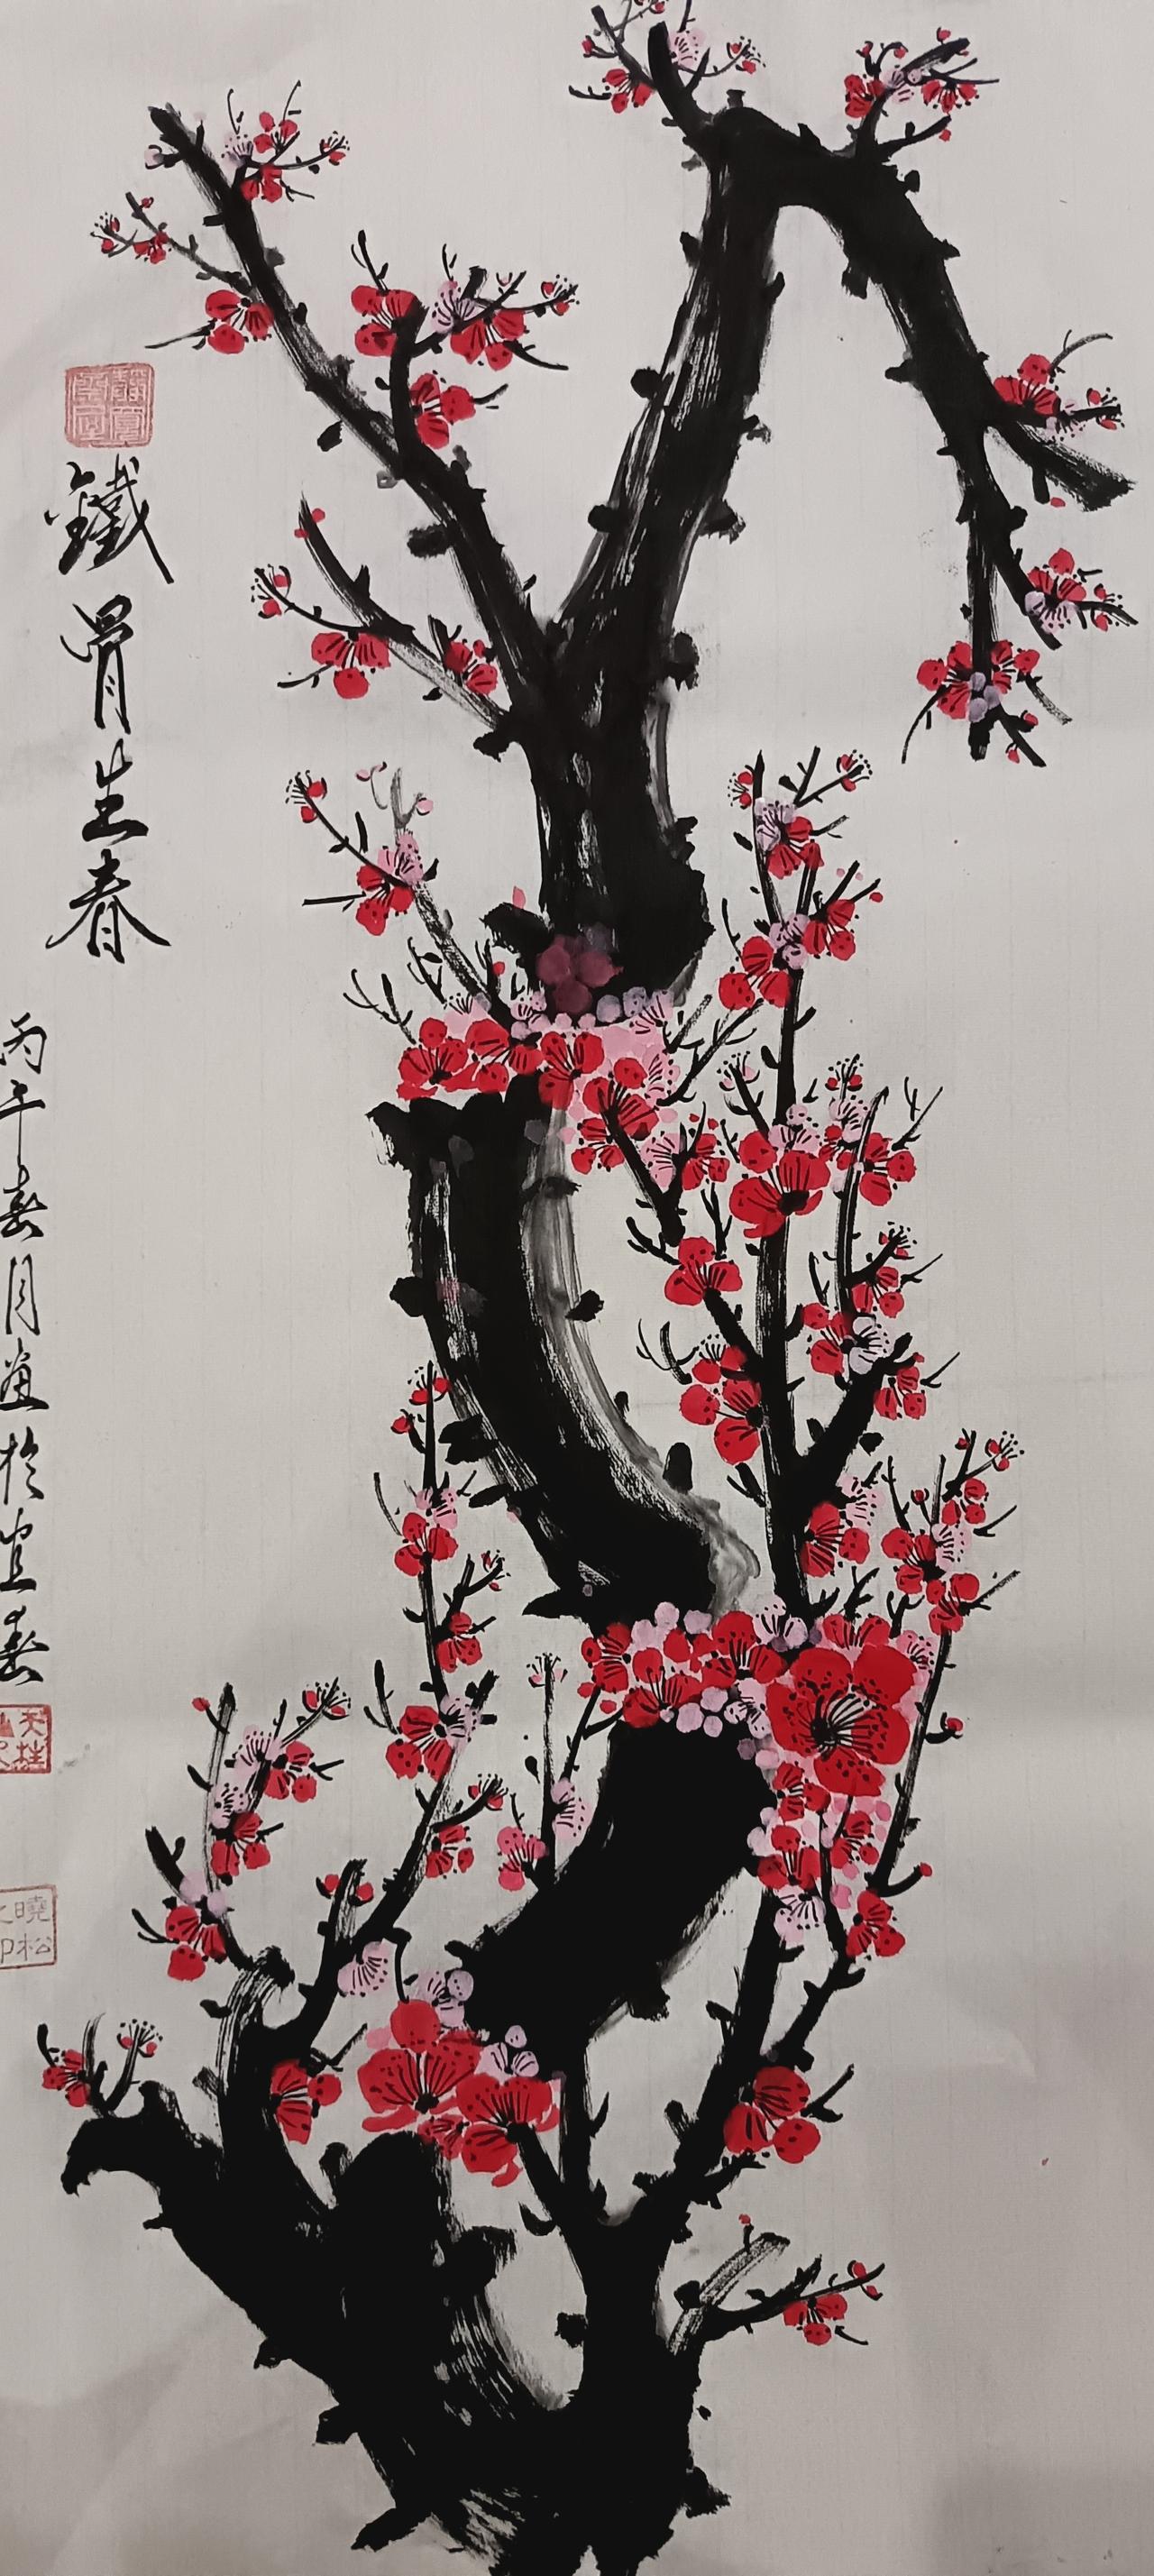 鐵骨生春
丙午春月畫於宜春
曉松